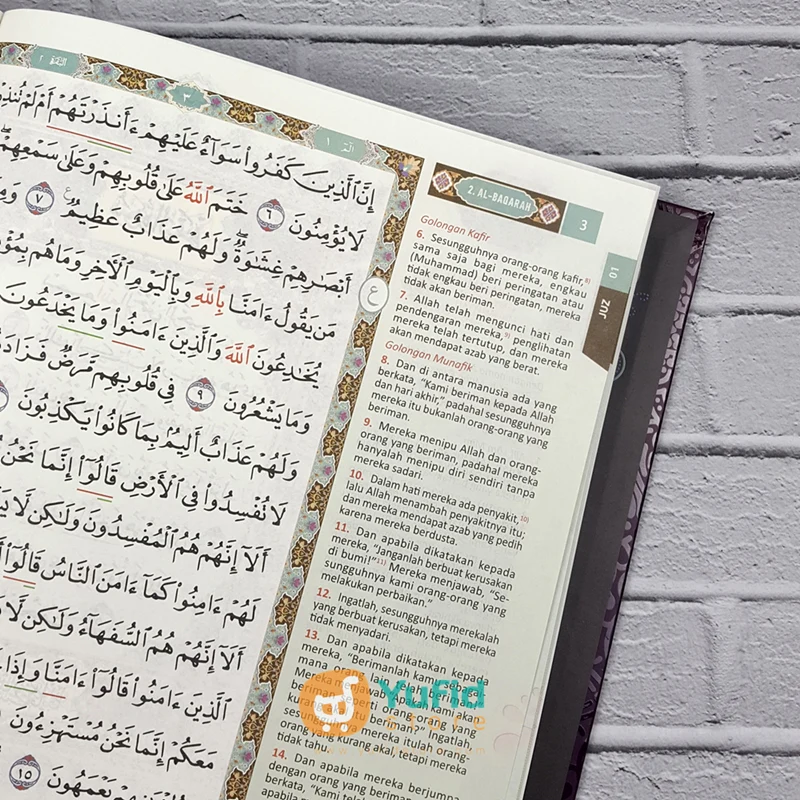 البقرة ٢
٣
الٓمٓ ١
إِنَّ ٱلَّذِينَ كَفَرُوا۟ سَوَآءٌ عَلَيْهِمْ ءَأَنذَرْتَهُمْ أَمْ لَمْ تُنذِرْ
لَا يُؤْمِنُونَ ٦ خَتَمَ ٱللَّهُ عَلَىٰ قُلُوبِهِمْ وَعَلَىٰ سَمْعِهِمْ
أَبْصَٰرِهِمْ غِشَٰوَةٌ وَلَهُمْ عَذَابٌ عَظِيمٌ ٧
مَن يَقُولُ ءَامَنَّا بِٱللَّهِ وَبِٱلْيَوْمِ ٱلْءَاخِرِ وَمَا هُم
يُخَٰدِعُونَ ٱللَّهَ وَٱلَّذِينَ ءَامَنُوا۟ وَمَا يَخْدَعُونَ
وَمَا يَشْعُرُونَ ٩ فِى قُلُوبِهِم مَّرَضٌ
وَلَهُمْ عَذَابٌ أَلِيمٌۢ بِمَا كَانُوا۟ يَكْذِبُونَ
لَا تُفْسِدُوا۟ فِى ٱلْأَرْضِ قَالُوٓا۟ إِنَّمَا نَحْنُ
أَلَآ إِنَّهُمْ هُمُ ٱلْمُفْسِدُونَ وَلَٰكِن لَّا
لَهُمْ ءَامِنُوا۟ كَمَآ ءَامَنَ ٱلنَّاسُ قَالُوٓا۟
أَلَآ إِنَّهُمْ هُمُ ٱلسُّفَهَآءُ وَلَٰكِن لَّا
ٱلَّذِينَ ءَامَنُوا۟ قَالُوٓا۟ ءَامَنَّا وَإِذَا
مَعَكُمْ إِنَّمَا نَحْنُ مُسْتَهْزِءُونَ
يَعْمَهُونَ ١٥
ع
2. AL-BAQARAH
3
JUZ 01
Golongan Kafir
6. Sesungguhnya orang-orang kafir,
sama saja bagi mereka, engkau
(Muhammad) beri peringatan atau
tidak engkau beri peringatan, mereka
tidak akan beriman.
7. Allah telah mengunci hati dan
pendengaran mereka, penglihatan
mereka telah tertutup, dan mereka
akan mendapat azab yang berat.
Golongan Munafik
8. Dan di antara manusia ada yang
berkata, “Kami beriman kepada Allah
dan hari akhir,” padahal sesungguhnya
mereka itu bukanlah orang-orang yang
beriman.
9. Mereka menipu Allah dan orang-
orang yang beriman, padahal mereka
hanyalah menipu diri sendiri tanpa
mereka sadari.
10. Dalam hati mereka ada penyakit,10)
lalu Allah menambah penyakitnya itu;
dan mereka mendapat azab yang pedih
karena mereka berdusta.
11. Dan apabila dikatakan kepada
mereka, “Janganlah berbuat kerusakan
di bumi!”11) Mereka menjawab, “Se-
sungguhnya kami orang-orang yang
melakukan perbaikan.”
12. Ingatlah, sesungguhnya merekalah
yang berbuat kerusakan, tetapi mereka
tidak menyadari.
13. Dan apabila dikatakan kepada
mereka, “Berimanlah kamu sebagai
mana orang
Mereka menjawab, “Apakah kami akan
beriman seperti orang-orang yang
kurang beriman?” Ingatlah,
sesungguhnya mereka itulah orang-
orang yang kurang akal, tetapi mereka
tidak tahu.
14. Dan apabila mereka berjumpa
dengan orang yang beriman
berkata, “Kami
apabila
Yufid
Store